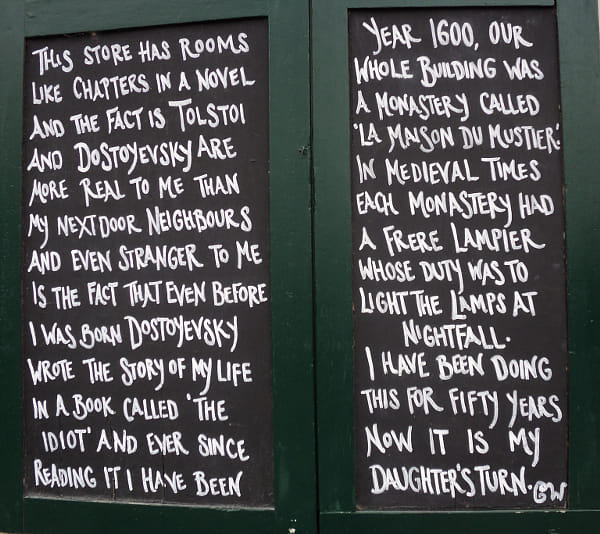 THIS STORE HAS ROOMS
LIKE CHAPTERS IN A NOVEL
AND THE FACT IS TOLSTOI
AND DOSTOYEVSKY ARE
MORE REAL TO ME THAN
MY NEXT DOOR NEIGHBOURS
AND EVEN STRANGER TO ME
IS THE FACT THAT EVEN BEFORE
I WAS BORN DOSTOYEVSKY
WROTE THE STORY OF MY LIFE
IN A BOOK CALLED 'THE
IDIOT' AND EVER SINCE
READING IT I HAVE BEEN
YEAR 1600, OUR
WHOLE BUILDING WAS
A MONASTERY CALLED
'LA MAISON DU MUSTIER'.
IN MEDIEVAL TIMES
EACH MONASTERY HAD
A FRERE LAMPIER
WHOSE DUTY WAS TO
LIGHT THE LAMPS AT
NIGHTFALL.
I HAVE BEEN DOING
THIS FOR FIFTY YEARS
NOW IT IS MY
DAUGHTER'S TURN. GW